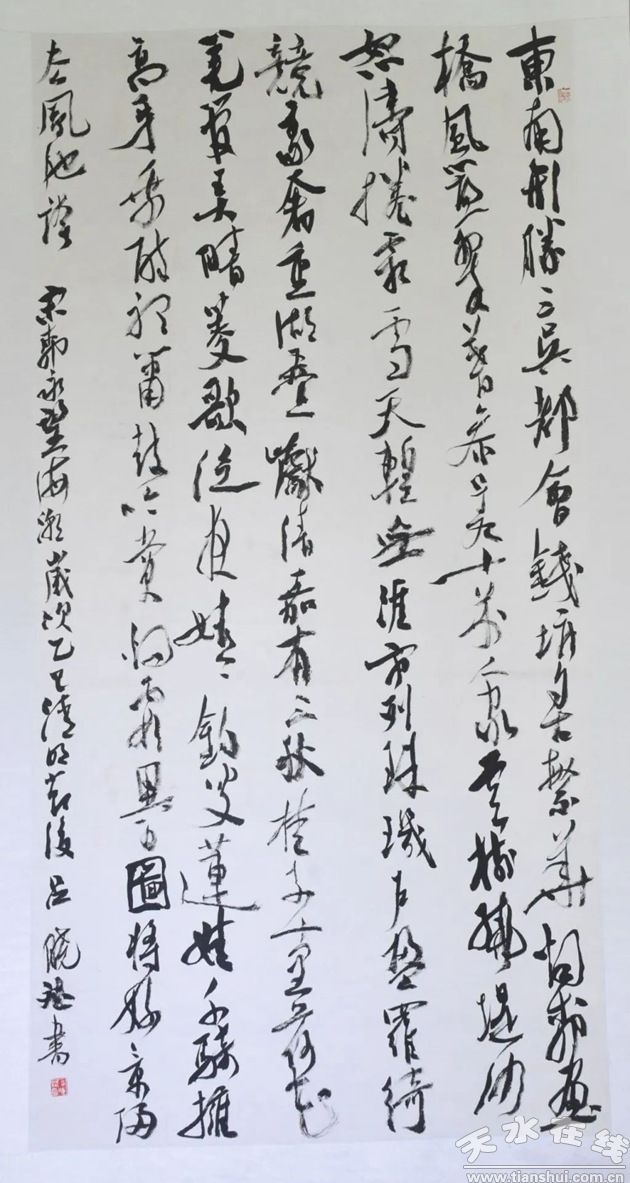 東南形勝三吳都會錢塘自古繁華烟柳畫
橋風簾翠幕參差十萬人家雲樹繞堤沙
怒濤捲霜雪天塹無涯市列珠璣戶盈羅綺
競豪奢重湖疊巘清嘉有三秋桂子十里荷花
羌管弄晴菱歌泛夜嬉々釣叟蓮娃千騎擁
高牙乘醉聽簫鼓吟賞烟霞異日圖將好景歸
去鳳池誇 宋柳永望海潮歲次乙巳清明前後 呂曉書
天水在线
www.tianshui.com.cn